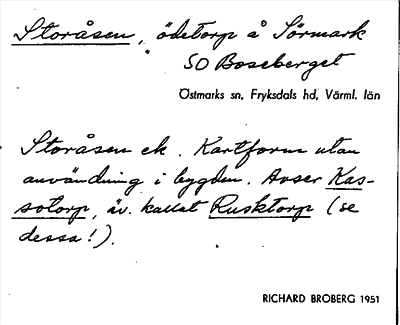 Storåsen, ödetorp å Sörmark
SO Boseberget
Östmarks sn, Fryksdals hd, Värml. län
Storåsen ek. Kartform utan
användning i bygden. Avser Kas-
sotorp, äv. kallat Rusktorp (se
dessa!).
RICHARD BROBERG 1951